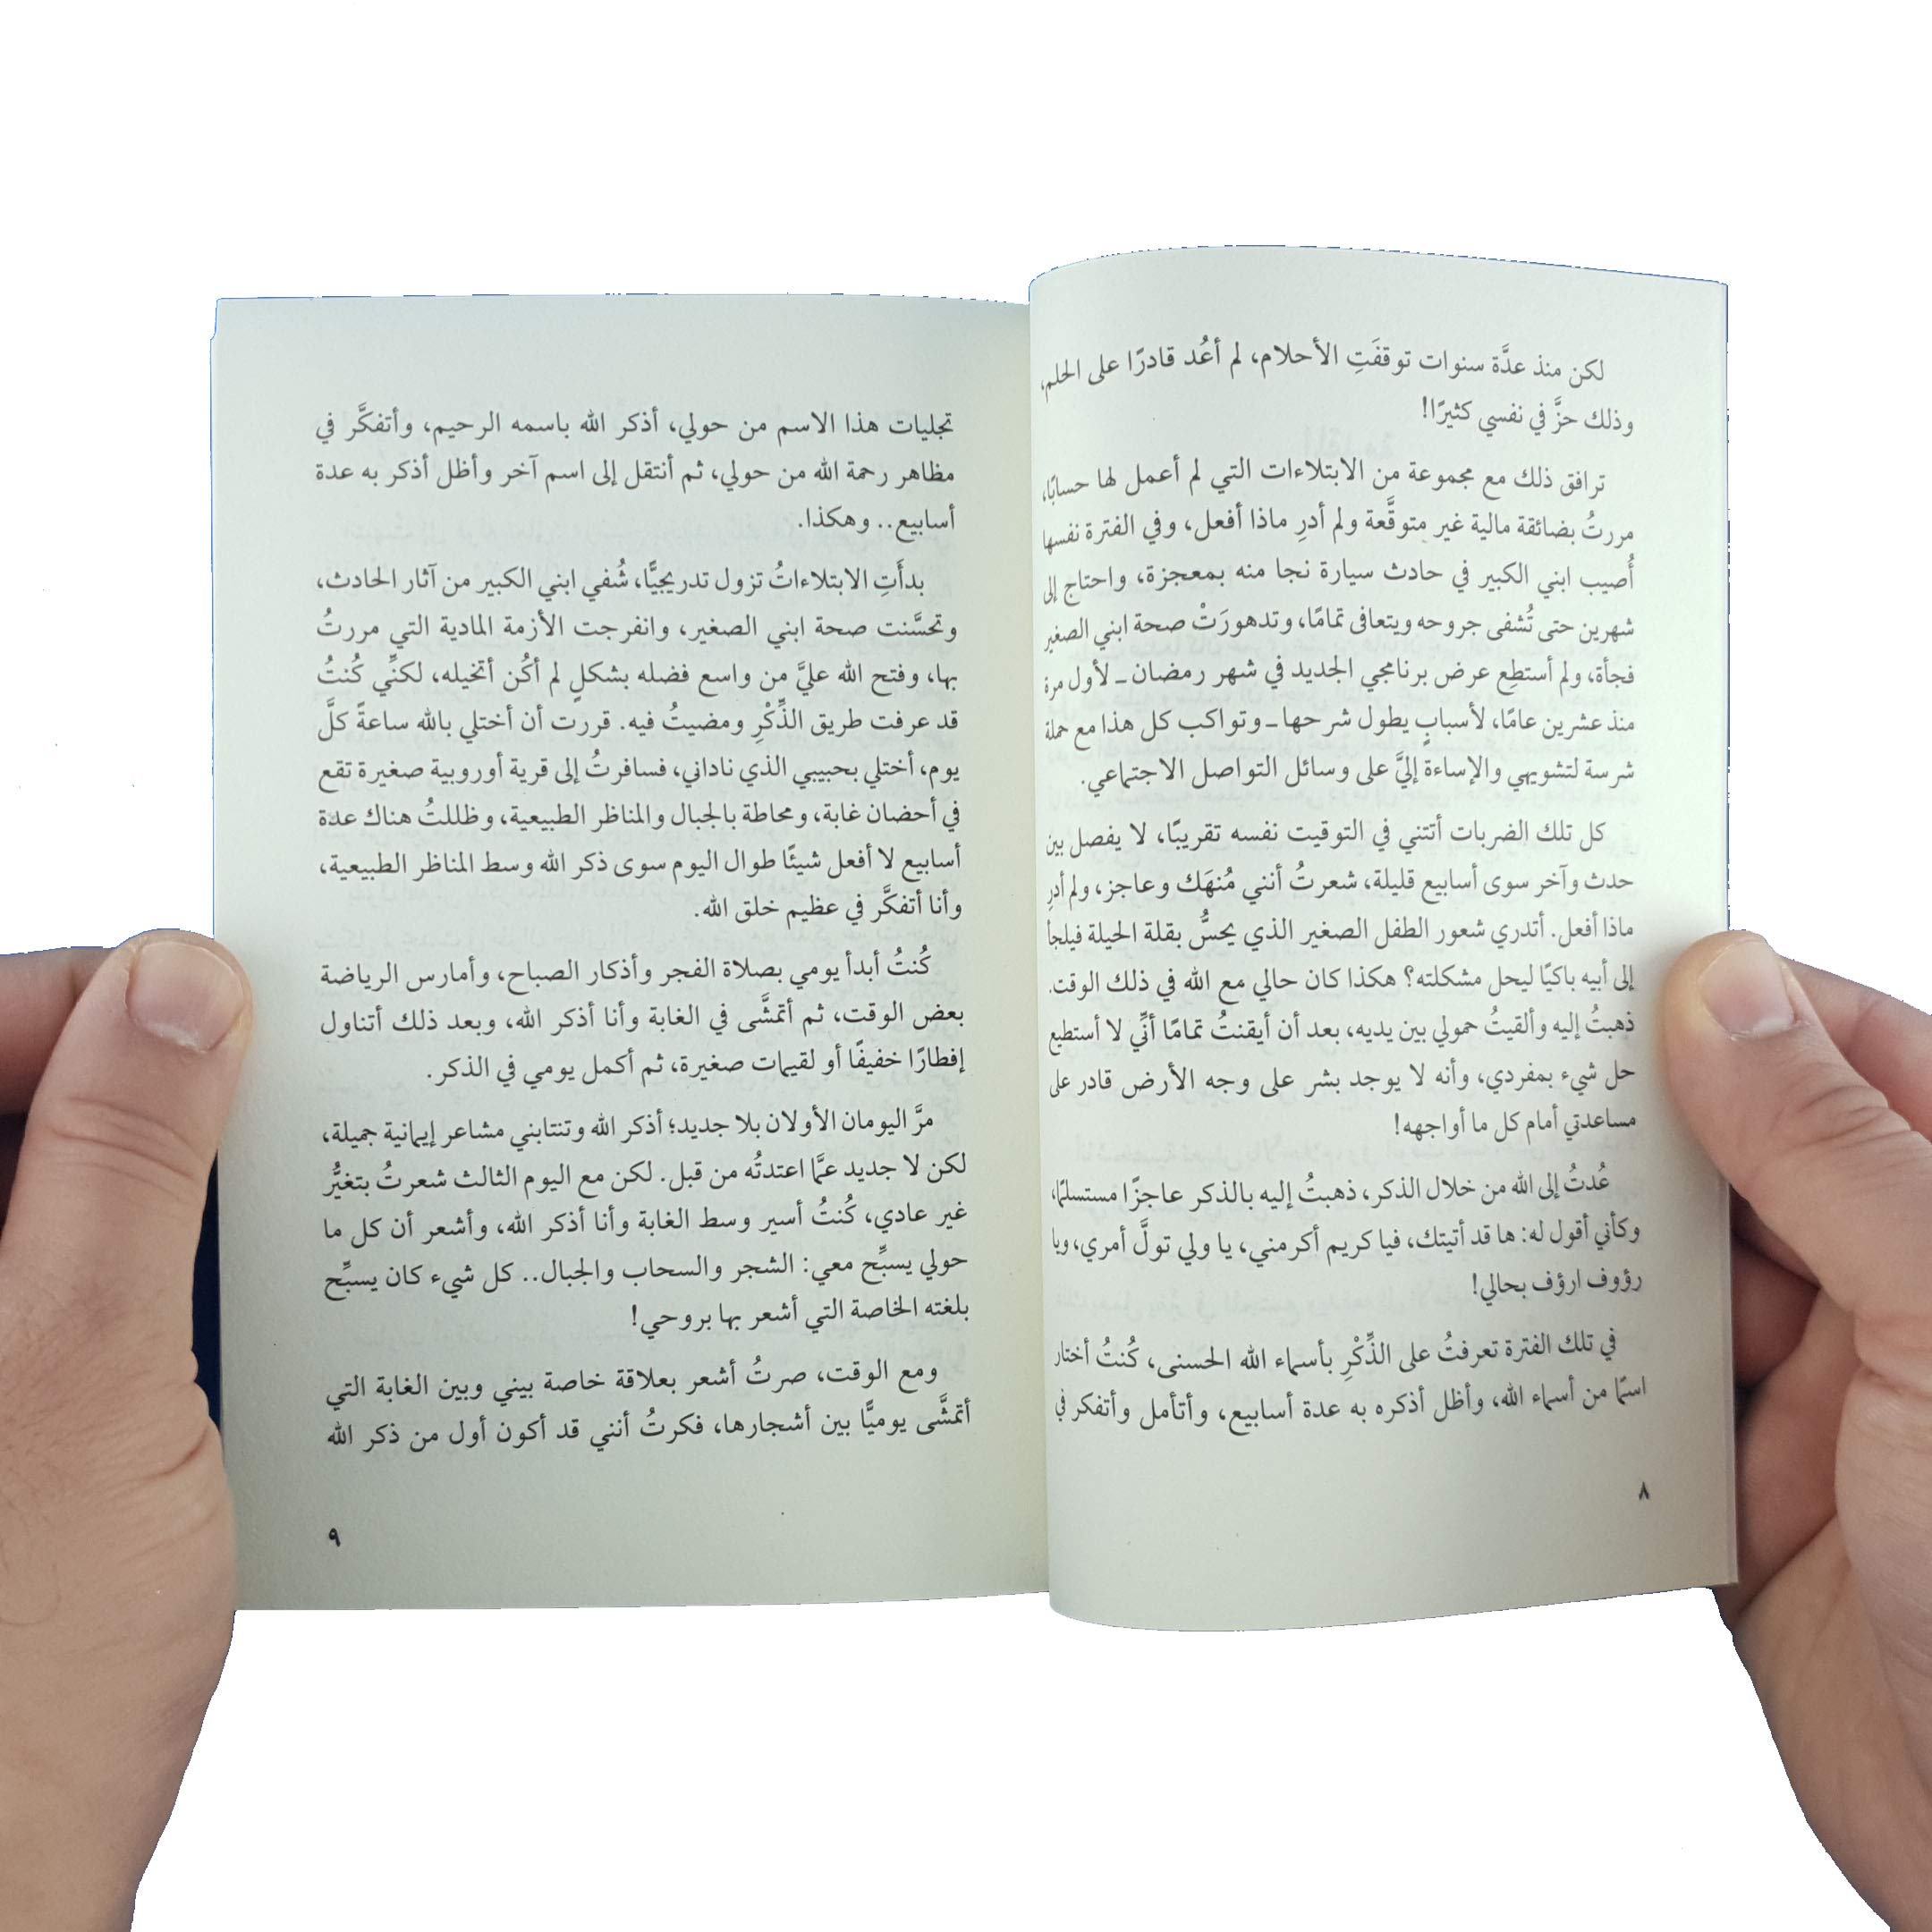 لكن منذ عدَّة سنوات توقفَتِ الأحلام، لم أعُد قادرًا على الحلم،
وذلك حزَّ في نفسي كثيرًا!
ترافق ذلك مع مجموعة من الابتلاءات التي لم أعمل لها حسابًا،
مررتُ بضائقة مالية غير متوقَّعة ولم أدرِ ماذا أفعل، وفي الفترة نفسها
أُصيب ابني الكبير في حادث سيارة نجا منه بمعجزة، واحتاج إلى
شهرين حتى تُشفى جروحه ويتعافى تمامًا، وتدهورَتْ صحة ابني الصغير
فجأة، ولم أستطِع عرض برنامجي الجديد في شهر رمضان ـ لأول مرة
منذ عشرين عامًا، لأسبابٍ يطول شرحها ـ وتواكب كل هذا مع حملة
شرسة لتشويهي والإساءة إليَّ على وسائل التواصل الاجتماعي.
كل تلك الضربات أتتني في التوقيت نفسه تقريبًا، لا يفصل بين
حدث وآخر سوى أسابيع قليلة، شعرتُ أنني مُنهَك وعاجز، ولم أدرِ
ماذا أفعل. أتدري شعور الطفل الصغير الذي يحسُّ بقلة الحيلة فيلجأ
إلى أبيه باكيًا ليحل مشكلته؟ هكذا كان حالي مع الله في ذلك الوقت.
ذهبتُ إليه وألقيتُ حمولي بين يديه، بعد أن أيقنتُ تمامًا أنِّي لا أستطيع
حل شيء بمفردي، وأنه لا يوجد بشر على وجه الأرض قادر على
مساعدتي أمام كل ما أواجهه!
عُدتُ إلى الله من خلال الذكر، ذهبتُ إليه بالذكر عاجزًا مستسلمًا،
وكأني أقول له: ها قد أتيتك، فيا كريم أكرمني، يا ولي تولَّ أمري، ويا
رؤوف ارؤف بحالي!
في تلك الفترة تعرفتُ على الذِّكْرِ بأسماء الله الحسنى، كُنتُ أختار
اسمًا من أسماء الله، وأظل أذكره به عدة أسابيع، وأتأمل وأتفكر في
٨
تجليات هذا الاسم من حولي، أذكر الله باسمه الرحيم، وأتفكَّر في
مظاهر رحمة الله من حولي، ثم أنتقل إلى اسم آخر وأظل أذكر به عدة
أسابيع.. وهكذا.
بدأَتِ الابتلاءاتُ تزول تدريجيًّا، شُفي ابني الكبير من آثار الحادث،
وتحسَّنت صحة ابني الصغير، وانفرجت الأزمة المادية التي مررتُ
بها، وفتح الله عليَّ من واسع فضله بشكلٍ لم أكُن أتخيله، لكنِّي كُنتُ
قد عرفت طريق الذِّكْرِ ومضيتُ فيه. قررت أن أختلي بالله ساعةً كلَّ
يوم، أختلي بحبيبي الذي ناداني، فسافرتُ إلى قرية أوروبية صغيرة تقع
في أحضان غابة، ومحاطة بالجبال والمناظر الطبيعية، وظللتُ هناك عدة
أسابيع لا أفعل شيئًا طوال اليوم سوى ذكر الله وسط المناظر الطبيعية،
وأنا أتفكَّر في عظيم خلق الله.
كُنتُ أبدأ يومي بصلاة الفجر وأذكار الصباح، وأمارس الرياضة
بعض الوقت، ثم أتمشَّى في الغابة وأنا أذكر الله، وبعد ذلك أتناول
إفطارًا خفيفًا أو لقيمات صغيرة، ثم أكمل يومي في الذكر.
مرَّ اليومان الأولان بلا جديد؛ أذكر الله وتنتابني مشاعر إيمانية جميلة،
لكن لا جديد عمَّا اعتدتُه من قبل. لكن مع اليوم الثالث شعرتُ بتغيُّر
غير عادي، كُنتُ أسير وسط الغابة وأنا أذكر الله، وأشعر أن كل ما
حولي يسبِّح معي: الشجر والسحاب والجبال.. كل شيء كان يسبِّح
بلغته الخاصة التي أشعر بها بروحي!
ومع الوقت، صرتُ أشعر بعلاقة خاصة بيني وبين الغابة التي
أتمشَّى يوميًّا بين أشجارها، فكرتُ أنني قد أكون أول من ذكر الله
٩